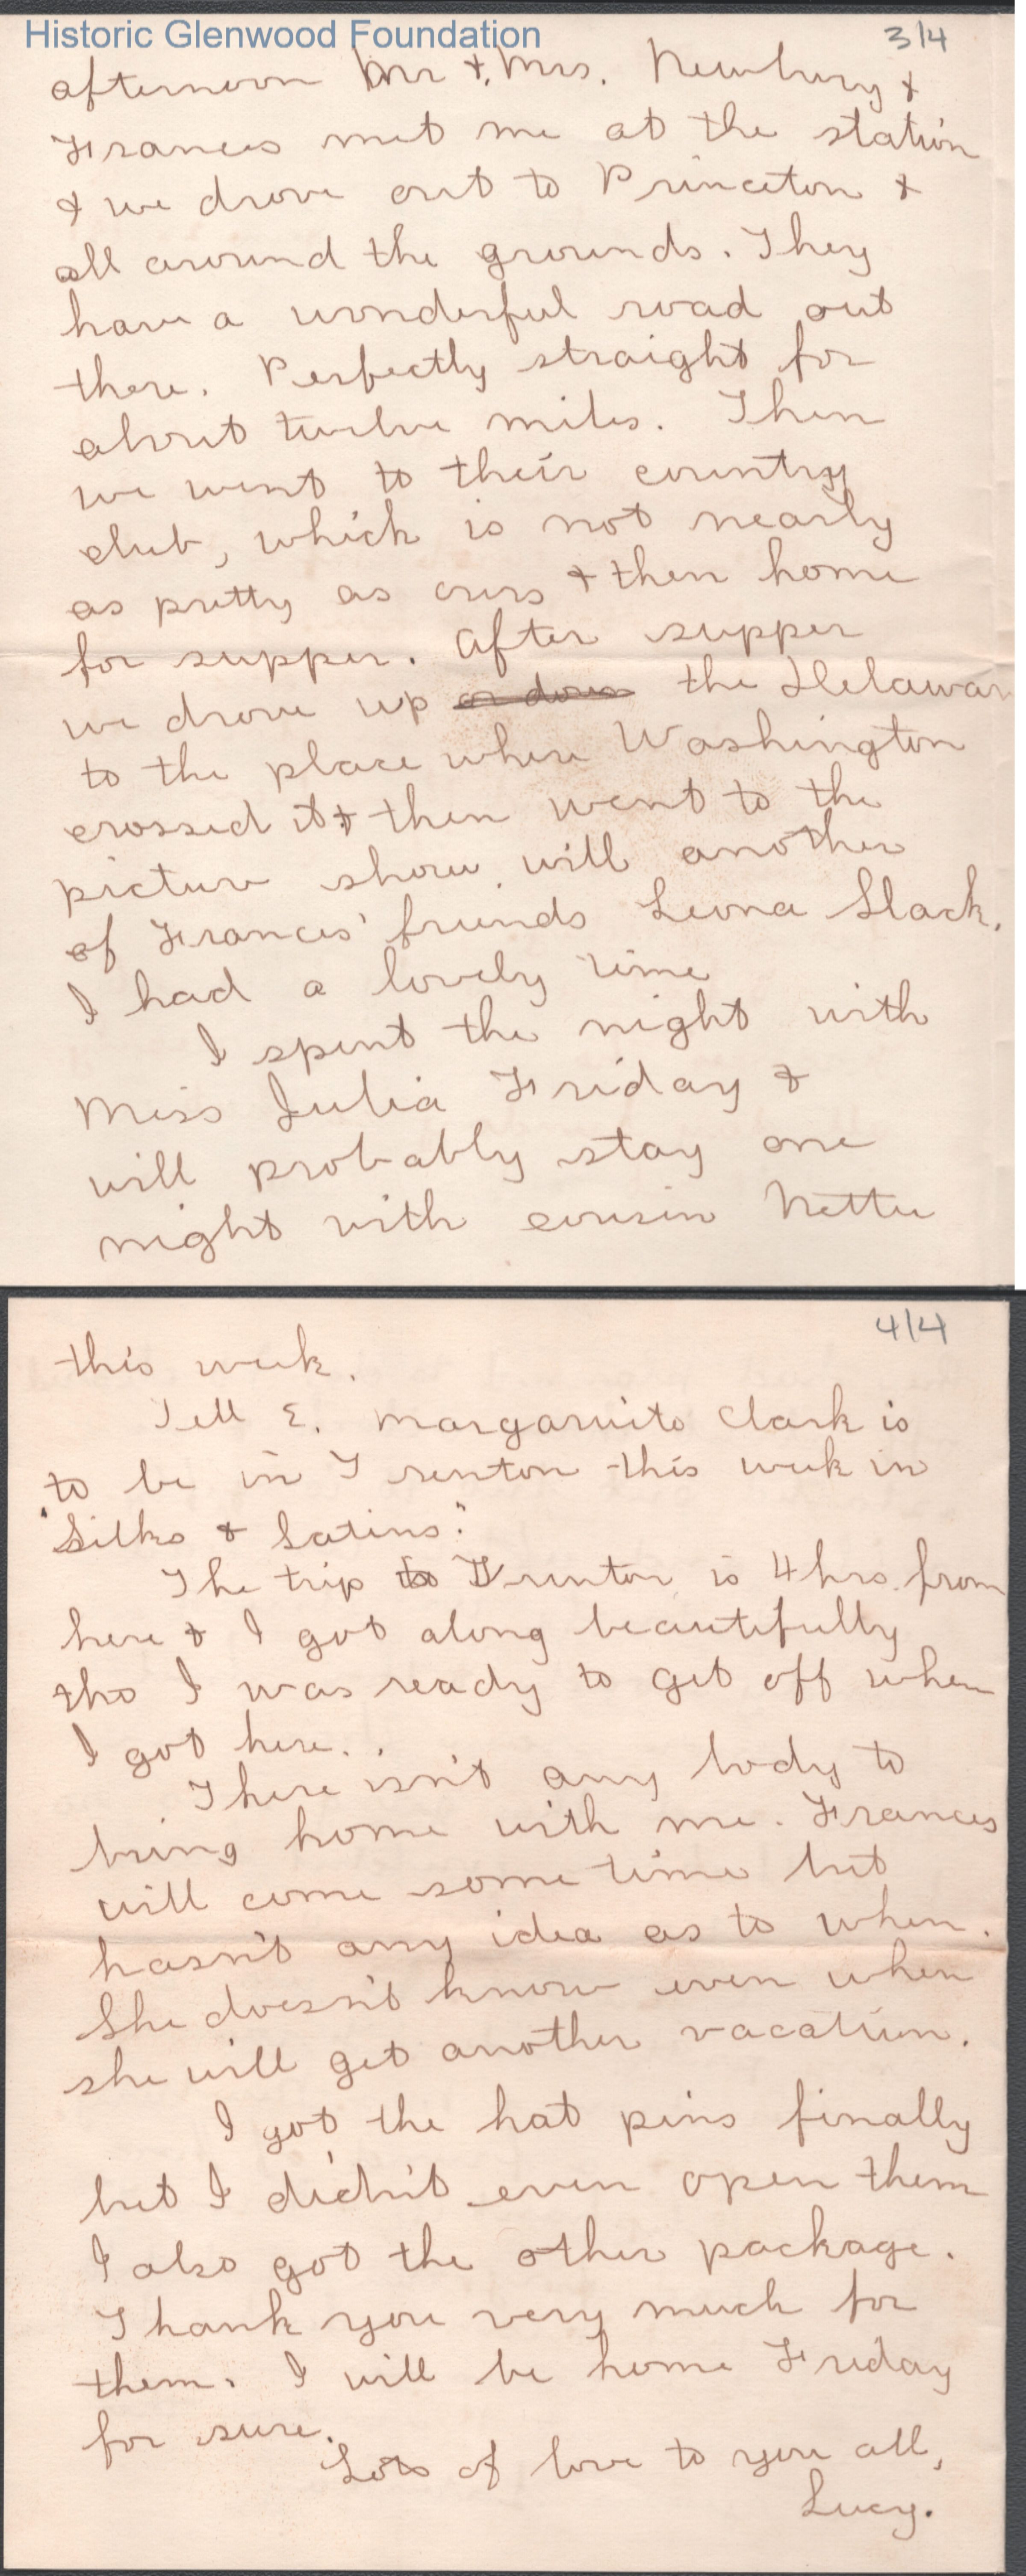 Historic Glenwood Foundation
3/4
afternoon Mr & Mrs. Newbury &
Frances met me at the station
& we drove out to Princeton &
all around the grounds. They
have a wonderful road out
there. Perfectly straight for
about twelve miles. Then
we went to their country
club, which is not nearly
as pretty as ours & then home
for supper. After supper
we drove up or down the Delawar
to the place where Washington
crossed it & then went to the
picture show will another
of Frances' friends Leona Slack.
I had a lovely time
I spent the night with
Miss Julia Friday &
will probably stay one
night with cousin Nettie
4/4
this week.
Tell E. Margaruite Clark is
to be in Trenton this week in
"Silks & Satins."
The trip to Trenton is 4 hrs. from
here & I got along beautifully
tho I was ready to get off when
I got here.
There isn't any body to
bring home with me. Frances
will come some time but
hasn't any idea as to when.
She doesn't know even when
she will get another vacation.
I got the hat pins finally
but I didn't even open them
I also got the other package.
Thank you very much for
them. I will be home Friday
for sure.
Lots of love to you all,
Lucy.